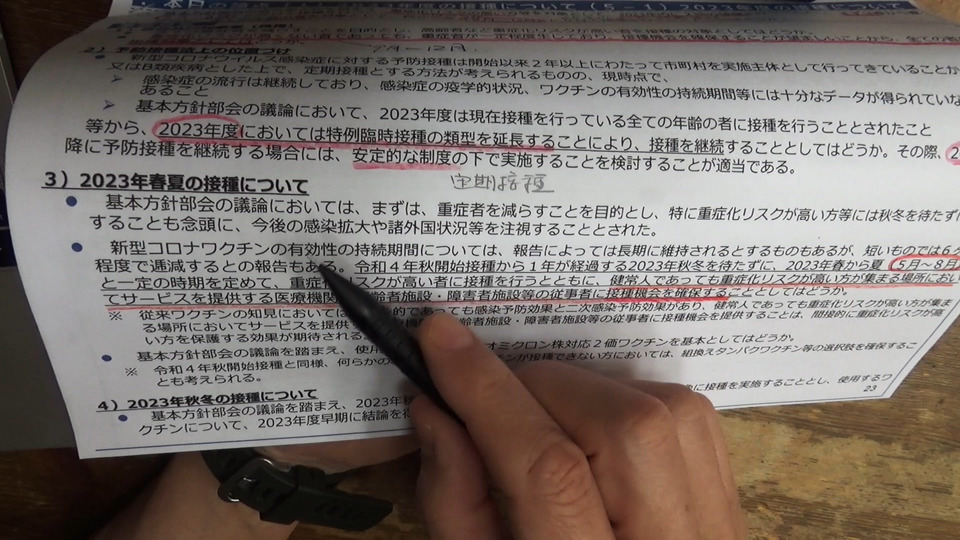 の接種について（5－1）2023年
重症者が一定程度生じており
9月－12月.
2）予防接種法上の位置づけ
新型コロナウイルス感染症に対する予防接種は開始以来２年以上にわたって市町村を実施主体として行ってきていることか
又はB類疾病とした上で、定期接種とする方法が考えられるものの、現時点で、
➢ 感染症の流行は継続しており、感染症の疫学的状況、ワクチンの有効性の持続期間等には十分なデータが得られていな
あること
➢ 基本方針部会の議論において、2023年度は現在接種を行っている全ての年齢の者に接種を行うこととされたこと
等から、2023年度においては特例臨時接種の類型を延長することにより、接種を継続することとしてはどうか。その際、2
降に予防接種を継続する場合には、安定的な制度の下で実施することを検討することが適当である。
定期接種
3）2023年春夏の接種について
● 基本方針部会の議論においては、まずは、重症者を減らすことを目的とし、特に重症化リスクが高い方等には秋冬を待たず
することも念頭に、今後の感染拡大や諸外国状況等を注視することとされた。
● 新型コロナワクチンの有効性の持続期間については、報告によっては長期に維持されるとするものもあるが、短いものでは6ヶ
程度で逓減するとの報告もある。令和４年秋開始接種から１年が経過する2023年秋冬を待たずに、2023年春から夏（5月～8月
と一定の時期を定めて、重症化リスクが高い者に接種を行うとともに、健常人であっても重症化リスクが高い方が集まる場所にお
てサービスを提供する医療機関 齢者施設・障害者施設等の従事者に接種機会を確保することとしてはどうか。
※ 従来ワクチンの知見においては 的であっても感染予防効果と二次感染予防効果があり、健常人であっても重症化リスクが高い方が集ま
る場所においてサービスを提供す 齢者施設・障害者施設等の従事者に接種機会を提供することは、間接的に重症化リスクが高
い方を保護する効果が期待される
● 基本方針部会の議論を踏まえ、使用 オミクロン株対応２価ワクチンを基本としてはどうか。
※ 令和４年秋開始接種と同様、何らかの ンが接種できない方においては、組換えタンパクワクチン等の選択肢を確保するこ
とも考えられる。
4）2023年秋冬の接種について
● 基本方針部会の議論を踏まえ、2023年秋 に接種を実施することとし、使用するワ
クチンについて、2023年度早期に結論を得
23